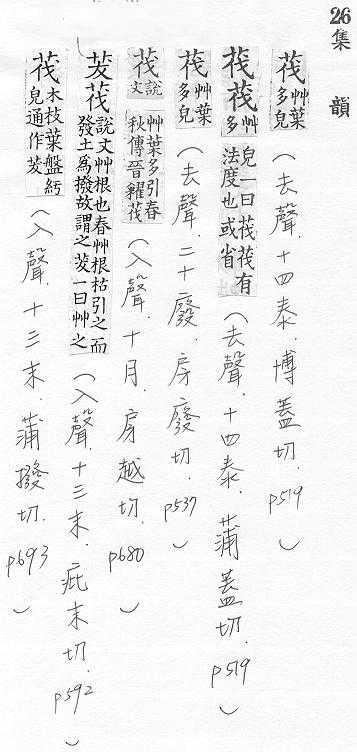 26集 韻
茷 艸葉多皃 (去聲.十四泰.博蓋切.p519)
茷茷 艸多皃一曰茷茷有法度也或省 (去聲.十四泰.蒲蓋切.p519)
茷 艸葉多皃 (去聲.二十廢.房廢切.p537)
茷 說文艸葉多引春秋傳晉糴茷 (入聲.十月.房越切.p680)
茇茷 說文艸根也春艸根枯引之而發土為撥故謂之茇一曰艸之 (入聲.十三末.疪末切.p592)
茷 木枝葉盤紆皃通作茇 (入聲.十三末.蒲撥切.p693)